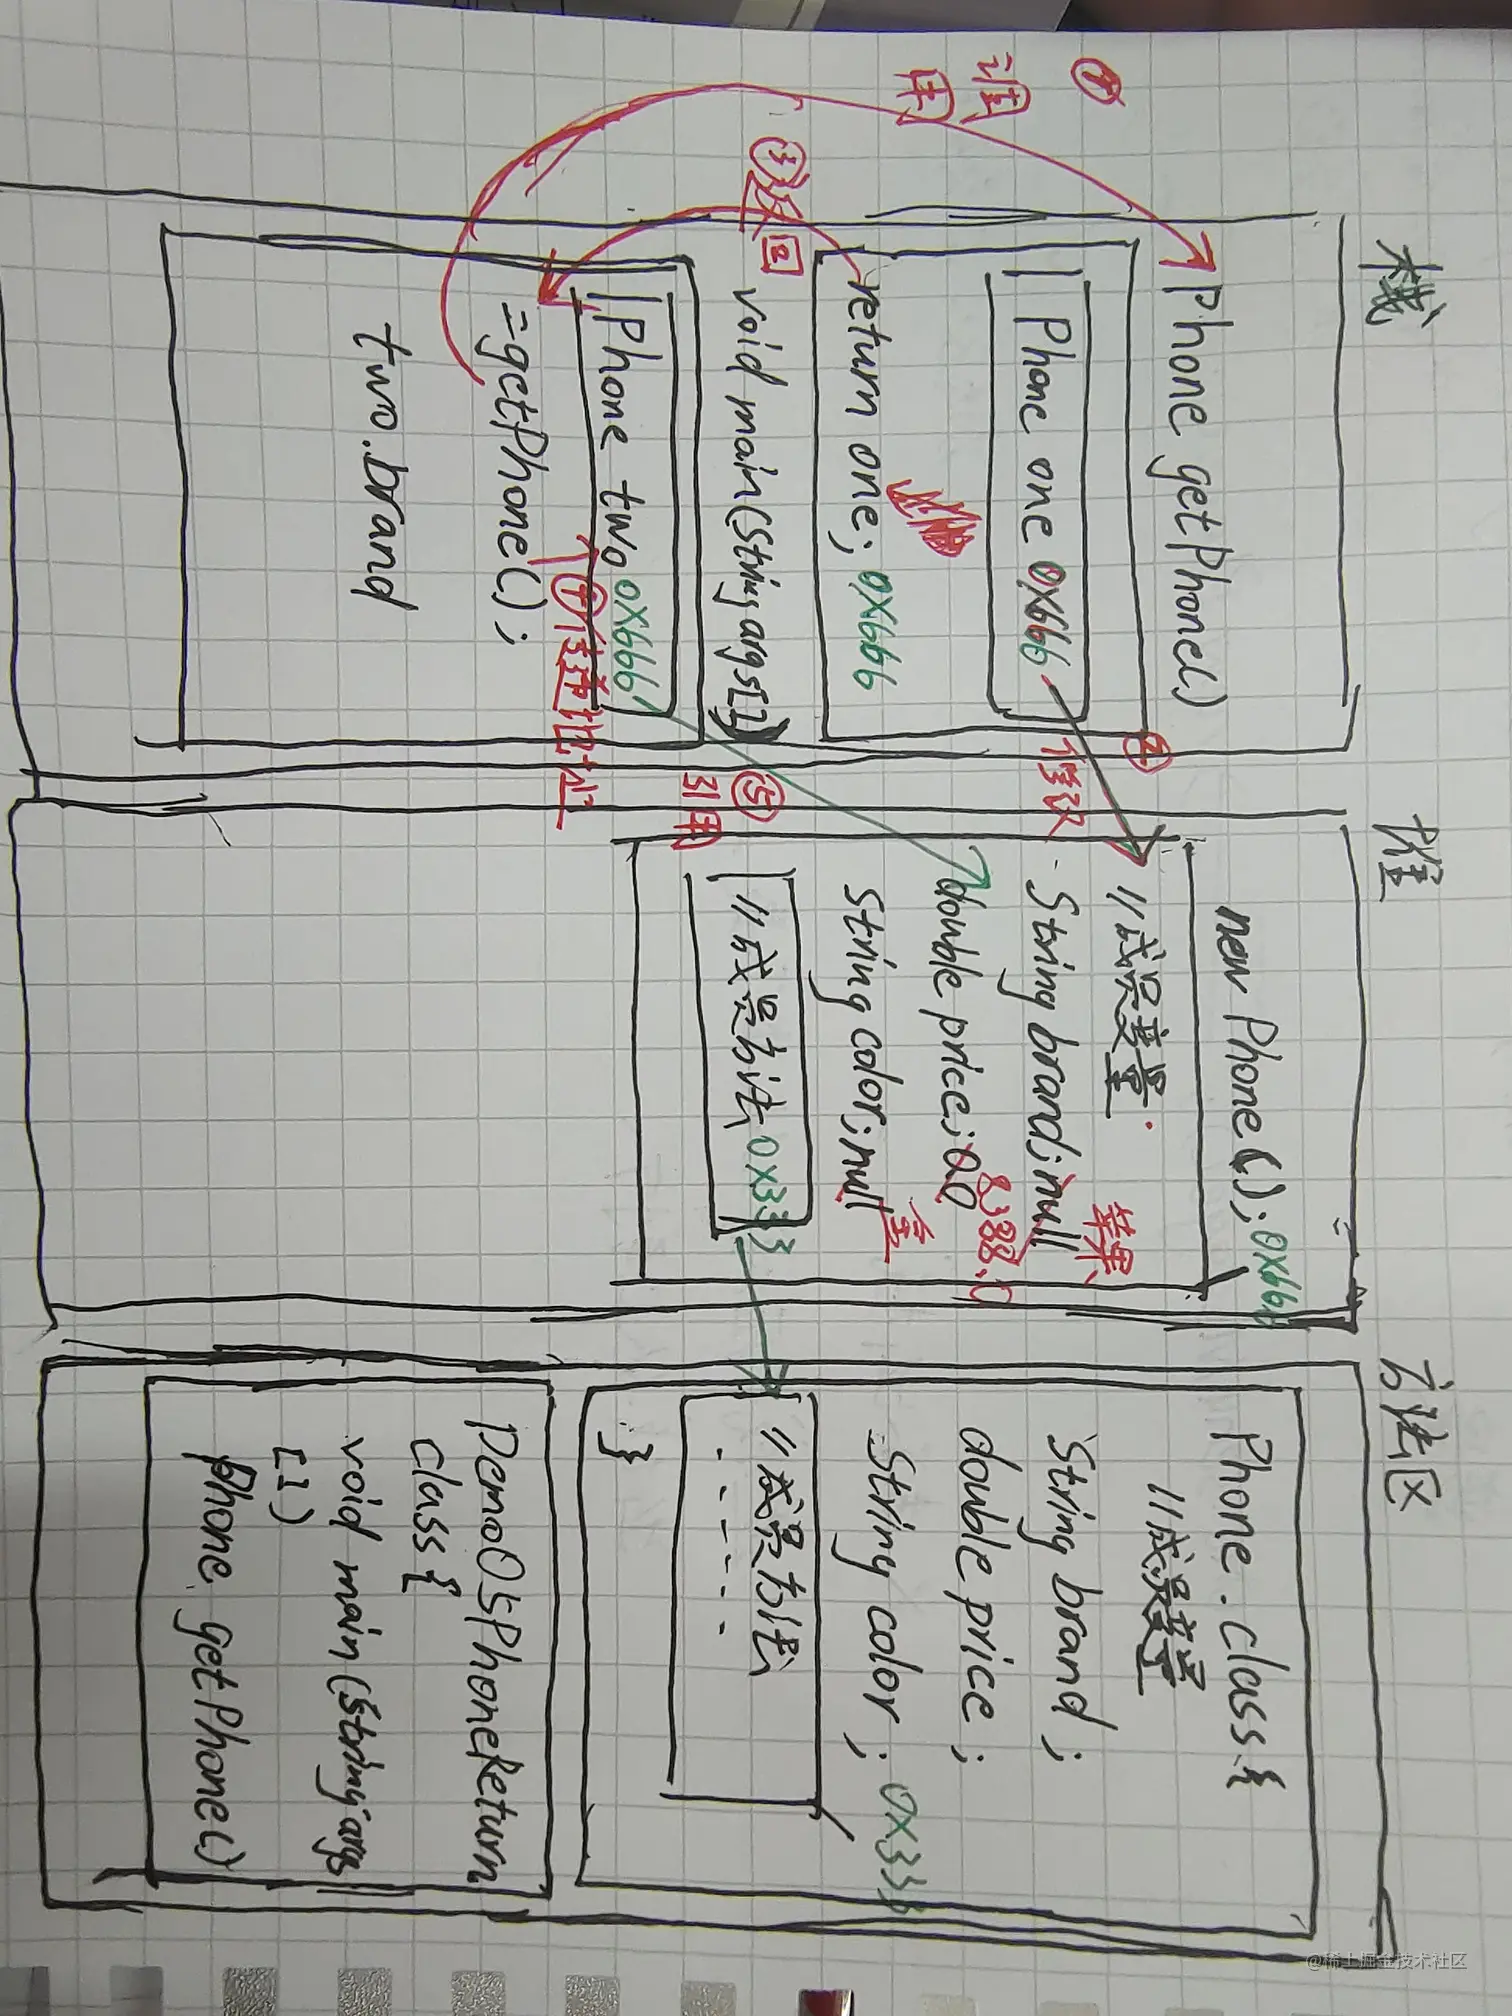 栈
Phone getPhone()
Phone one 0x666
return one; 0x666
void main(String args[])
Phone two 0x666
=getPhone();
two.brand
① 调用
② 修改
③ 返回
④ 传递地址
⑤ 引用
堆
new Phone(); 0x666
//成员变量
String brand; null 苹果
double price; 0.0 8388.0
String color; null
//成员方法 0x333
方法区
Phone.class{
//成员变量
String brand;
double price;
String color; 0x333
//成员方法
......
}
Demo05PhoneReturn
class{
void main(String args
[])
Phone getPhone()
@稀土掘金技术社区